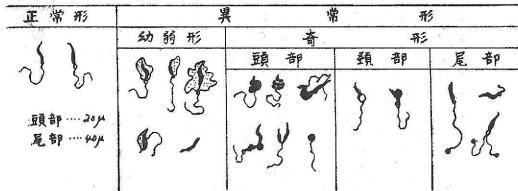 正常形
異常形
幼弱形
奇形
頭部
頚部
尾部
頭部‥‥20μ
尾部‥‥40μ